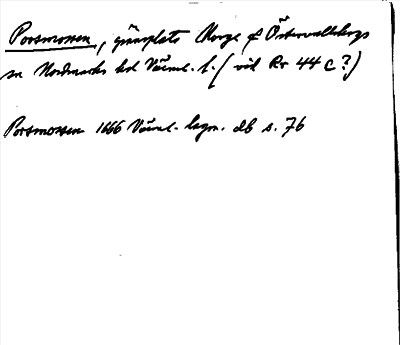 Porsmossen, gränsplats Norge o Östervallskogs
sn Nordmarks hd Värml. l. (vid Rr 44 C?)
Porsmossen 1666 Värml. lagm. db s. 76